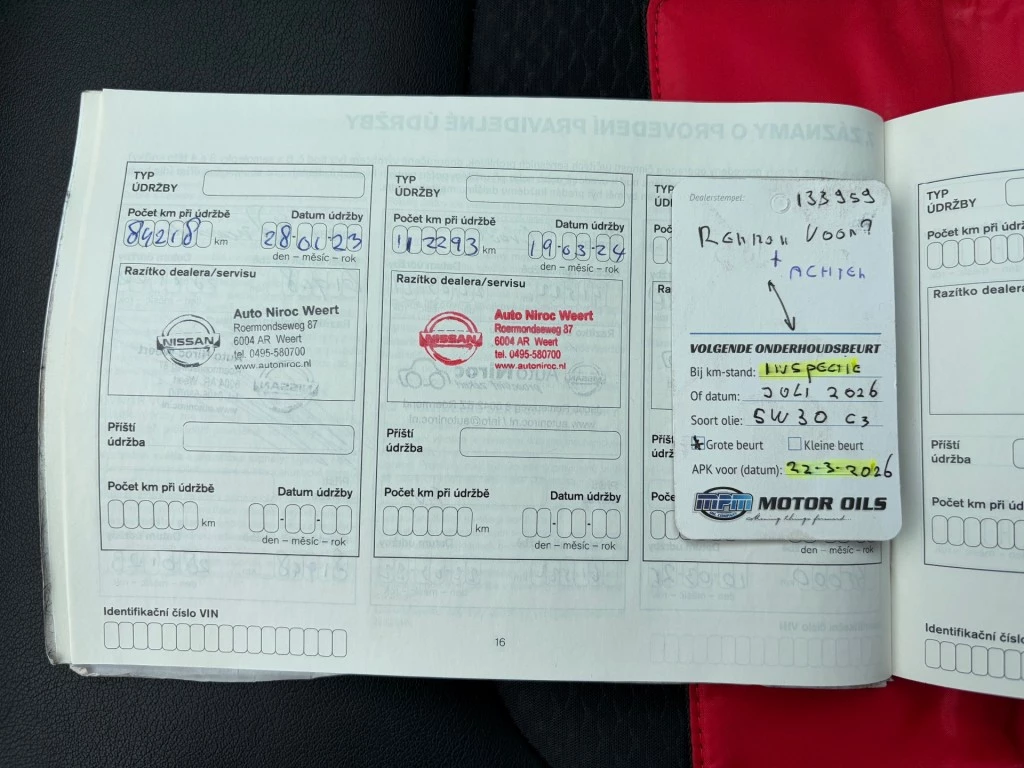 TYP
ÚDRŽBY
Počet km při údržbě
Datum údržby
84218 km
28-01-23
den – měsíc – rok
Razítko dealera/servisu
NISSAN
Auto Niroc Weert
Roermondseweg 87
6004 AR Weert
tel. 0495-580700
www.autoniroc.nl
Příští
údržba
Počet km při údržbě
Datum údržby
km
den – měsíc – rok
Identifikační číslo VIN
TYP
ÚDRŽBY
Počet km při údržbě
Datum údržby
112293 km
19-03-24
den – měsíc – rok
Razítko dealera/servisu
NISSAN
Auto Niroc Weert
Roermondseweg 87
6004 AR Weert
tel. 0495-580700
www.autoniroc.nl
Příští
údržba
Počet km při údržbě
Datum údržby
km
den – měsíc – rok
16
TYP
ÚDR
Poč
Ra
Příšt
údrž
Poče
den – měsíc – rok
Dealerstempel:
133959
Remmen Voor?
+
Achter
VOLGENDE ONDERHOUDSBEURT
Bij km-stand: INSPECTIE
Of datum: JULI 2026
Soort olie: 5W30 C3
Grote beurt
Kleine beurt
APK voor (datum): 22-3-2026
MPM MOTOR OILS
TYP
ÚDRŽBY
Počet km při údržb
Razítko dealera
Příští
údržba
Počet km při úd
Identifikační číslo